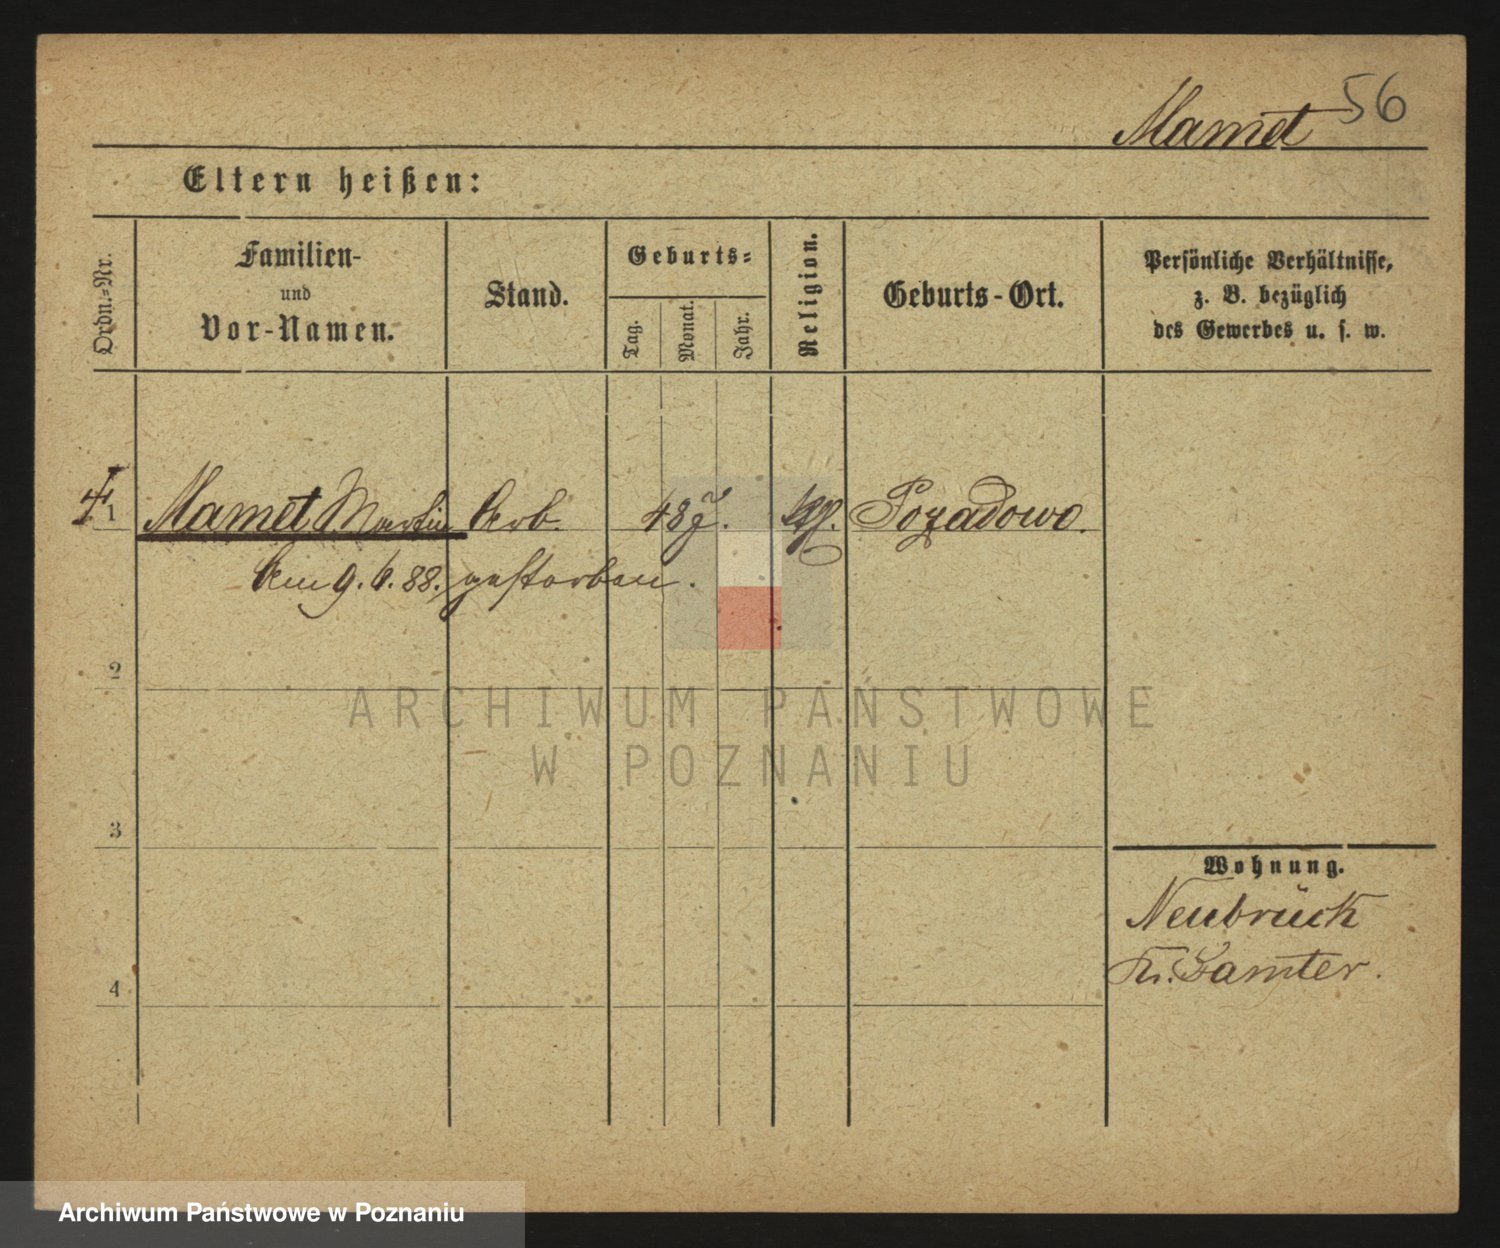 Mamet 56
Eltern heißen:
Ordn.-Nr.
Familien-
und
Vor-Namen.
Stand.
Geburts-
Tag.
Monat.
Jahr.
Religion.
Geburts-Ort.
Persönliche Verhältnisse,
z. B. bezüglich
des Gewerbes u. s. w.
1 Mamet Martin Arb. 48 J. kth. Pozadowo.
Am 9. 6. 88. gestorben.
2
3
4
Wohnung.
Neubrück
Kr. Samter.
ARCHIWUM PAŃSTWOWE
W POZNANIU
Archiwum Państwowe w Poznaniu